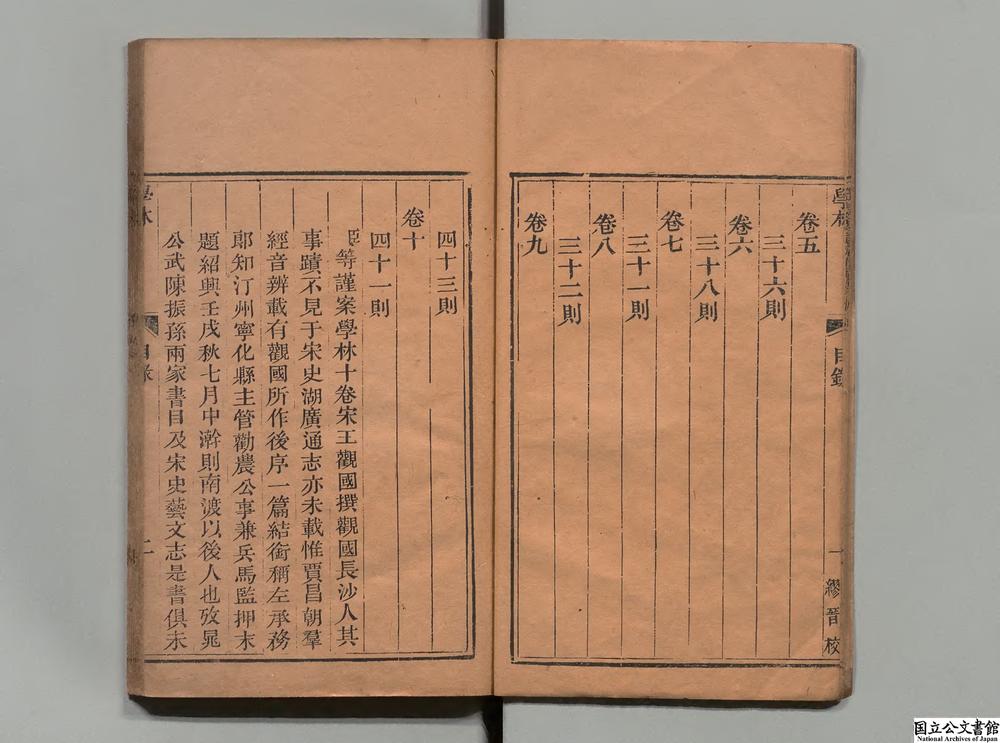 卷五
三十六則
卷六
三十八則
卷七
三十一則
卷八
三十二則
卷九
目錄
一
繆晉校
四十三則
卷十
四十一則
臣等謹案學林十卷宋王觀國撰觀國長沙人其
事蹟不見于宋史湖廣通志亦未載惟賈昌朝羣
經音辨載有觀國所作後序一篇結銜稱左承務
郞知汀州寧化縣主管勸農公事兼兵馬監押末
題紹興壬戌秋七月中澣則南渡以後人也攷晁
公武陳振孫兩家書目及宋史藝文志是書俱未
二
国立公文書館
National Archives of Japan